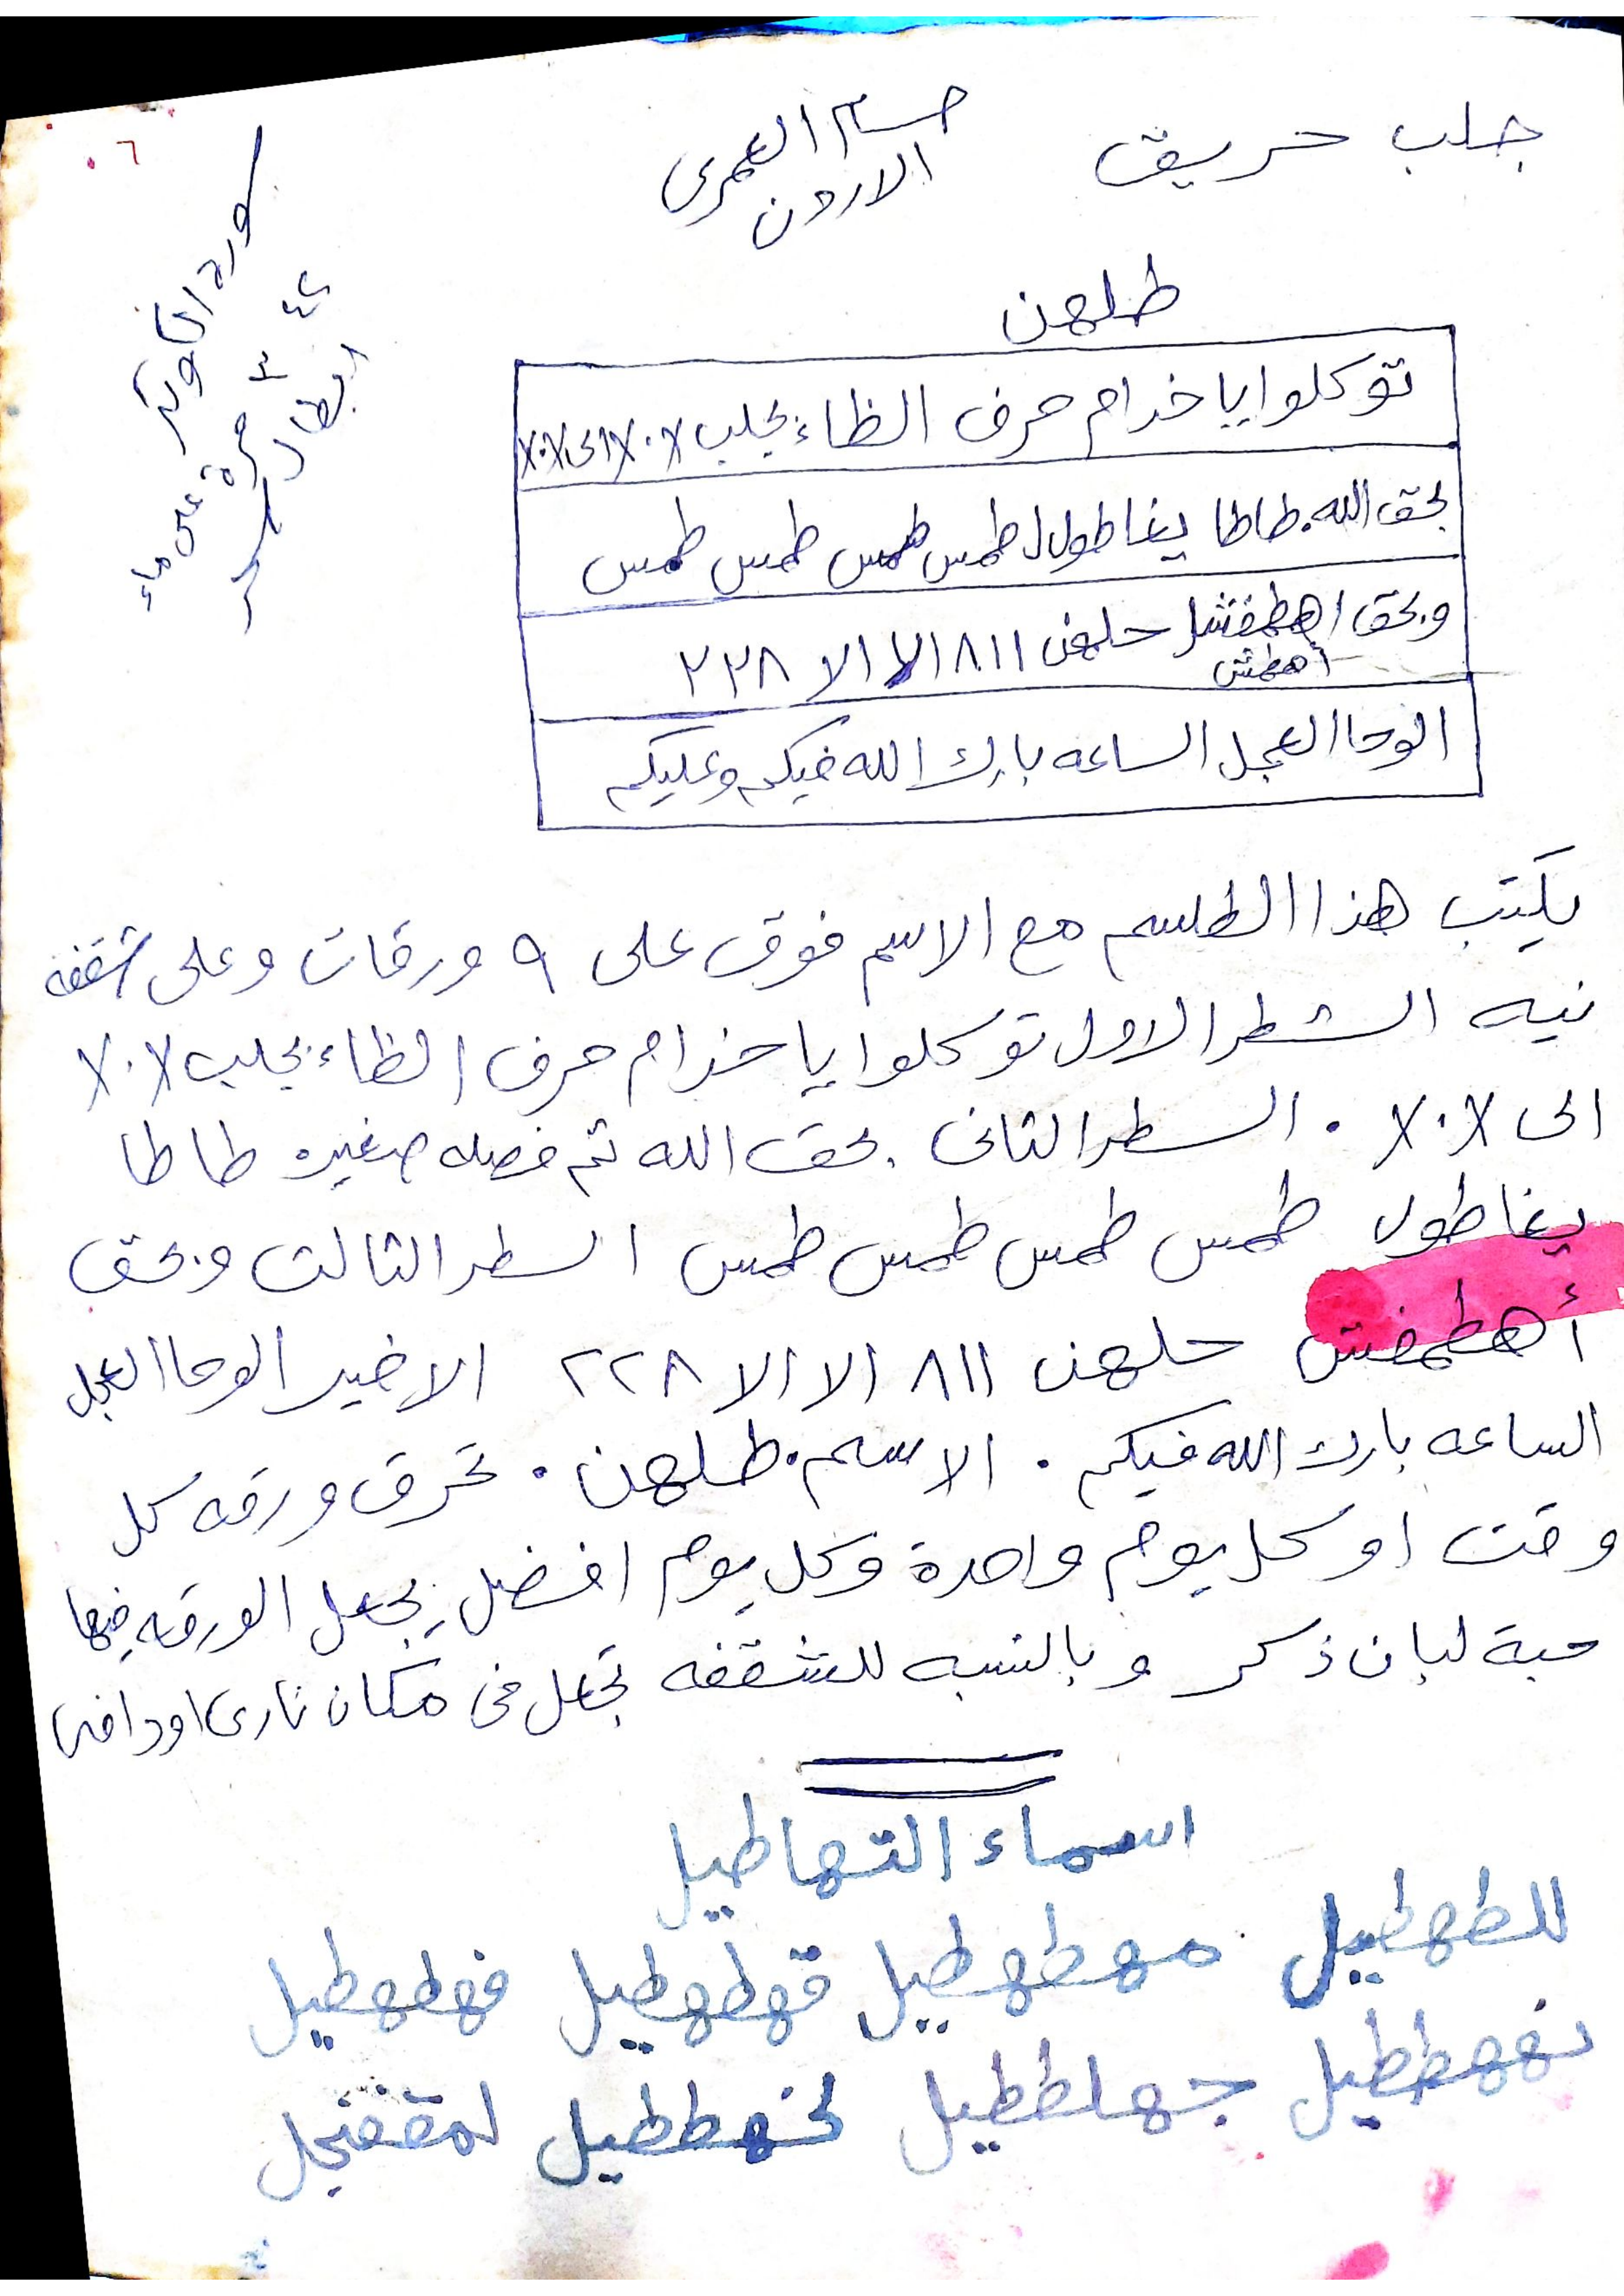 جلب حريق
حسام العمرى
الاردن
٠٦
سورة الكوثر
٤٢ مرة على ماء
ابطال سحر
طلهن
توكلوا يا خدام حرف الظاء بجلب ٧٠٧ الى ٧٠٧
بحق الله. طاطا يغاطول طمس طمس طمس طمس
وبحق اهطمفشل حلهن ٨١١ الا الا ٢٢٨
أهطمفش
الوحا العجل الساعه بارك الله فيكم وعليكم
يكتب هذا الطلسم مع الاسم فوق على ٩ ورقات وعلى شقفه
نيه الشطر الاول توكلوا يا خدام حرف الظاء بجلب ٧٠٧
الى ٧٠٧ . السطر الثانى بحق الله ثم فصله صغيره طاطا
يغاطول طمس طمس طمس طمس السطر الثالث وبحق
أهطمفش حلهن ٨١١ الا الا ٢٢٨ الاخير الوحا العجل
الساعه بارك الله فيكم . الاسم. طلهن . تحرق ورقه كل
وقت او كل يوم واحدة وكل يوم افضل يجعل الورقه فيها
حبة لبان ذكر وبالنسبه للشقفه تجعل فى مكان نارى او دافى
اسماء التهاطيل
للطهطيل مهطهطيل قهطهطيل فهطهطيل
نههططيل جهلططيل لخهططيل لمقفنجل